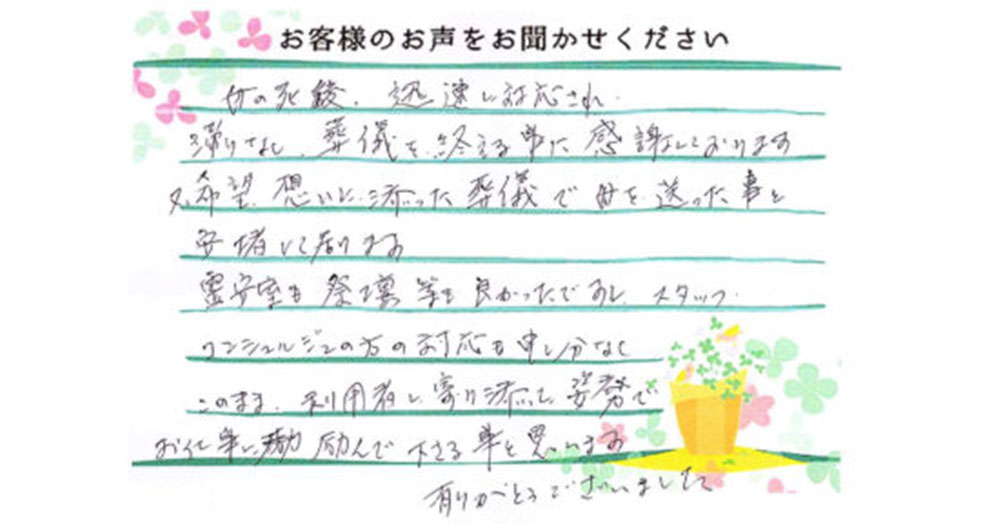 お客様のお声をお聞かせください
母の死後、迅速に対応され
滞りなし、葬儀を終える事に感謝しております
又、希望、想いに添った葬儀で母を送った事を
安堵して居ります
霊安室も祭壇等も良かったですし、スタッフ、
コンシェルジュの方の対応も申し分なく
このまま、利用者に寄り添った姿勢で
お仕事に励んで下さる事と思います
有りがとうございました